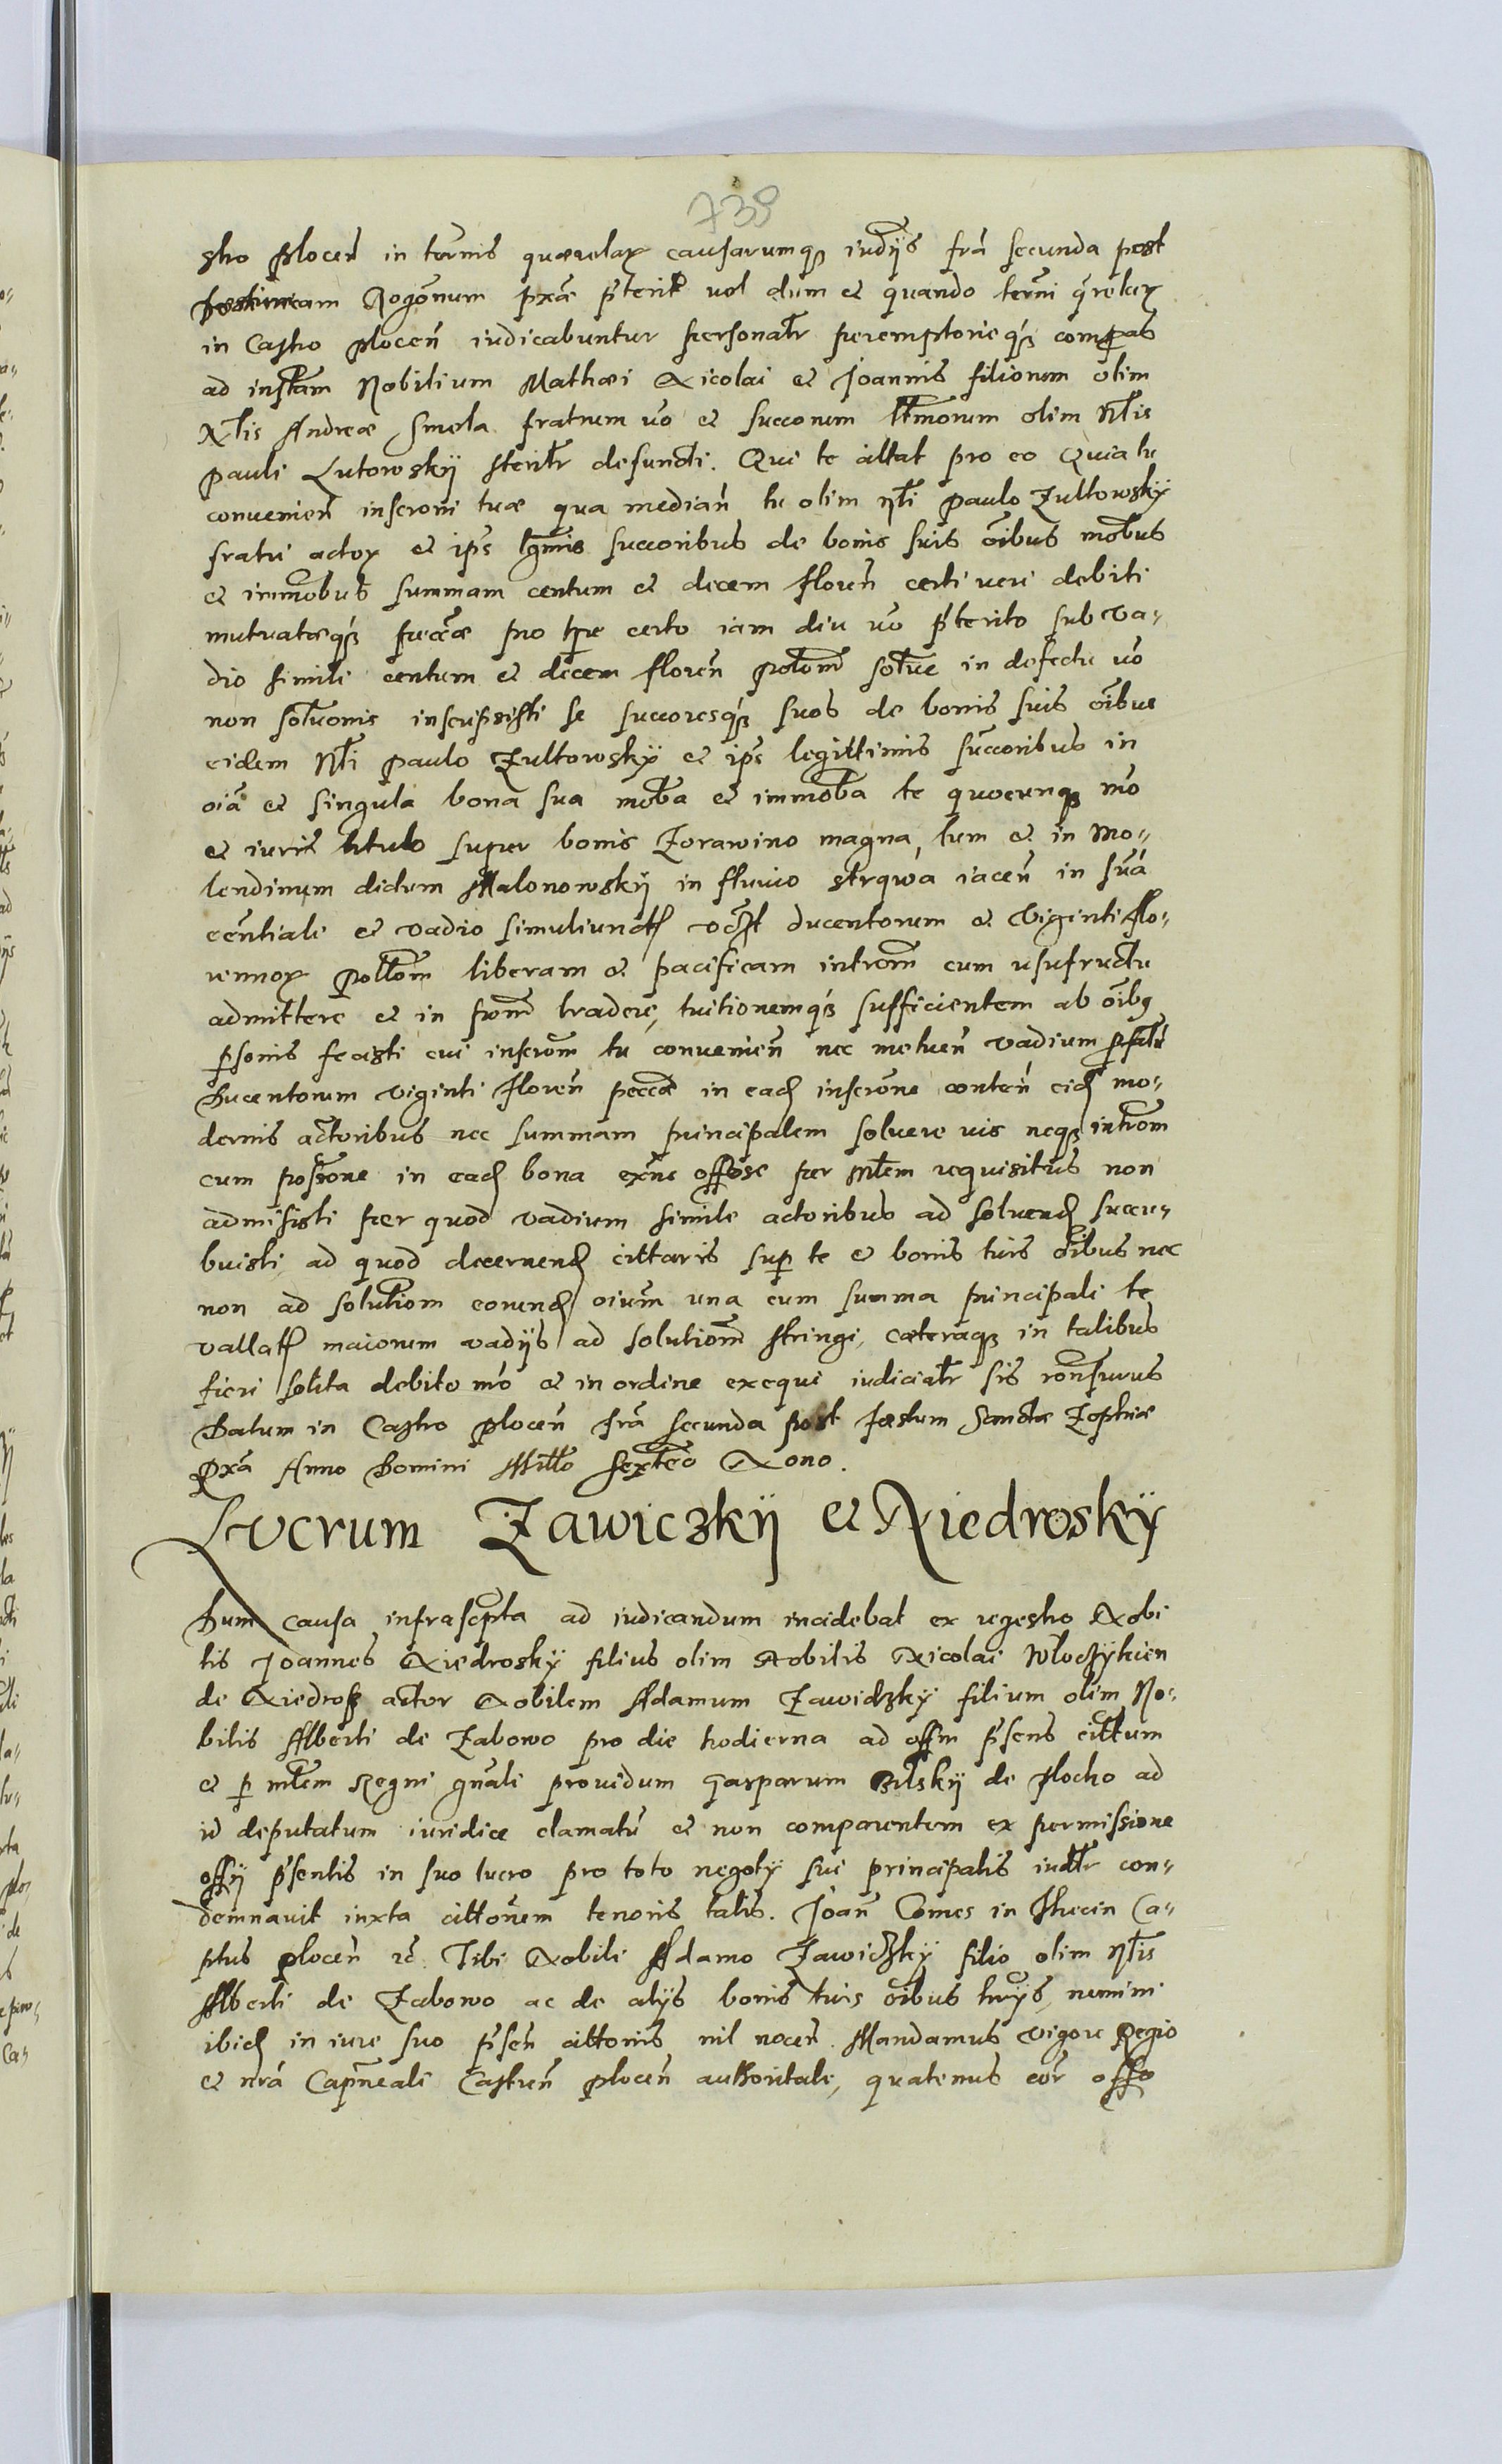 739
stro plocen in terminis quaerelar causarumq iudijs fra secunda post
Dominicam Rogonum pxa pterit vel dum et quando termi qrelar
in Castro plocen iudicabuntur personalr peremptorieq compas
ad instam Nobilium Mathaei Nicolai et Joannis filiorum olim
Nlis Andreae Smola fratrum vo et succorum ltimorum olim Nlis
pauli Lutowskij sterilr defuncti. Qui te cittat pro eo Quia tu
convenien inscroni tuae qua median tu olim Nli Paulo Zultowskÿ
fratri actor et ips lgmis succoribus de bonis suis oibus mobus
et immobus summam centum et decem floren certi veri debiti
mutuataeq peccae pro tpre certo iam diu vo pterito sub va-
dio simili centum et decem floren polom solve in defectu vo
non solvonis inscripsisti se succoresq suos de bonis suis oibus
eidem Nli Paulo Zultowskÿ et ips legittimis succoribus in
oia et singula bona sua moba et immoba te quocunq mo
et iuris titulo super bonis Zorawino magna, tum et in Mo-
lendinum dictum Malonowskij in fluvio strqwa iacen in sua
centiali et vadio simuliunct vdzt ducentorum et viginti flo-
renor poltom liberam et pacificam introm cum usufructu
admittere et in pom tradere, tuitionemq sufficientem ab oibq
psonis fecisti cui inscrom tu convenien nec metuen vadium pfatu
Ducentorum viginti floren peccae in ead inscrone conten eid mo-
dernis actoribus nec summam principalem solvere vis neqz introm
cum possione in ead bona exne offose per mlem requisitus non
admisisti per quod vadium simile actoribus ad solvend succu-
buisti, ad quod decernend cittaris sup te et bonis tuis oibus nec
non ad solutiom eorund oium una cum summa principali te
vallat maiorum vadijs ad solutiom stringi, caeteraqz in talibus
fieri solita debito mo et in ordine exequi iudicialr sis ronsurus
Datum in Castro plocen fra secunda post festum Sanctae Zophiae
Pxa Anno Domini Millo Sexteo Nono.
Lucrum Zawiczkij et Niedroskÿ
Dum causa infrascpta ad iudicandum incidebat ex regestro Nobi
lis Joannes Niedroskÿ filius olim Nobilis Nicolai Wloczÿkien
de Niedroz actor Nobilem Adamum Zawidzkÿ filium olim No-
bilis Alberti de Zabowo pro die hodierna ad offm psens cittum
et p mlem Regni gnali providum Gasparum Bilskij de Plocko ad
id deputatum iuridice clamatu et non comparentem ex permissione
offij psentis in suo lucro pro toto negotÿ sui principalis iudlr con-
demnavit iuxta cittonem tenoris talis. Joan Comes in Ca-
ptus plocen rc. Tibi Nobili Adamo Zawidzkÿ filio olim Nlis
Alberti de Zabowo ac de alijs bonis tuis oibus huÿs, nemini
ibid in iure suo psen cittonis nil nocen. Mandamus vigore Regio
et nra Capneali Castren plocen authoritate, quatenus cor offo